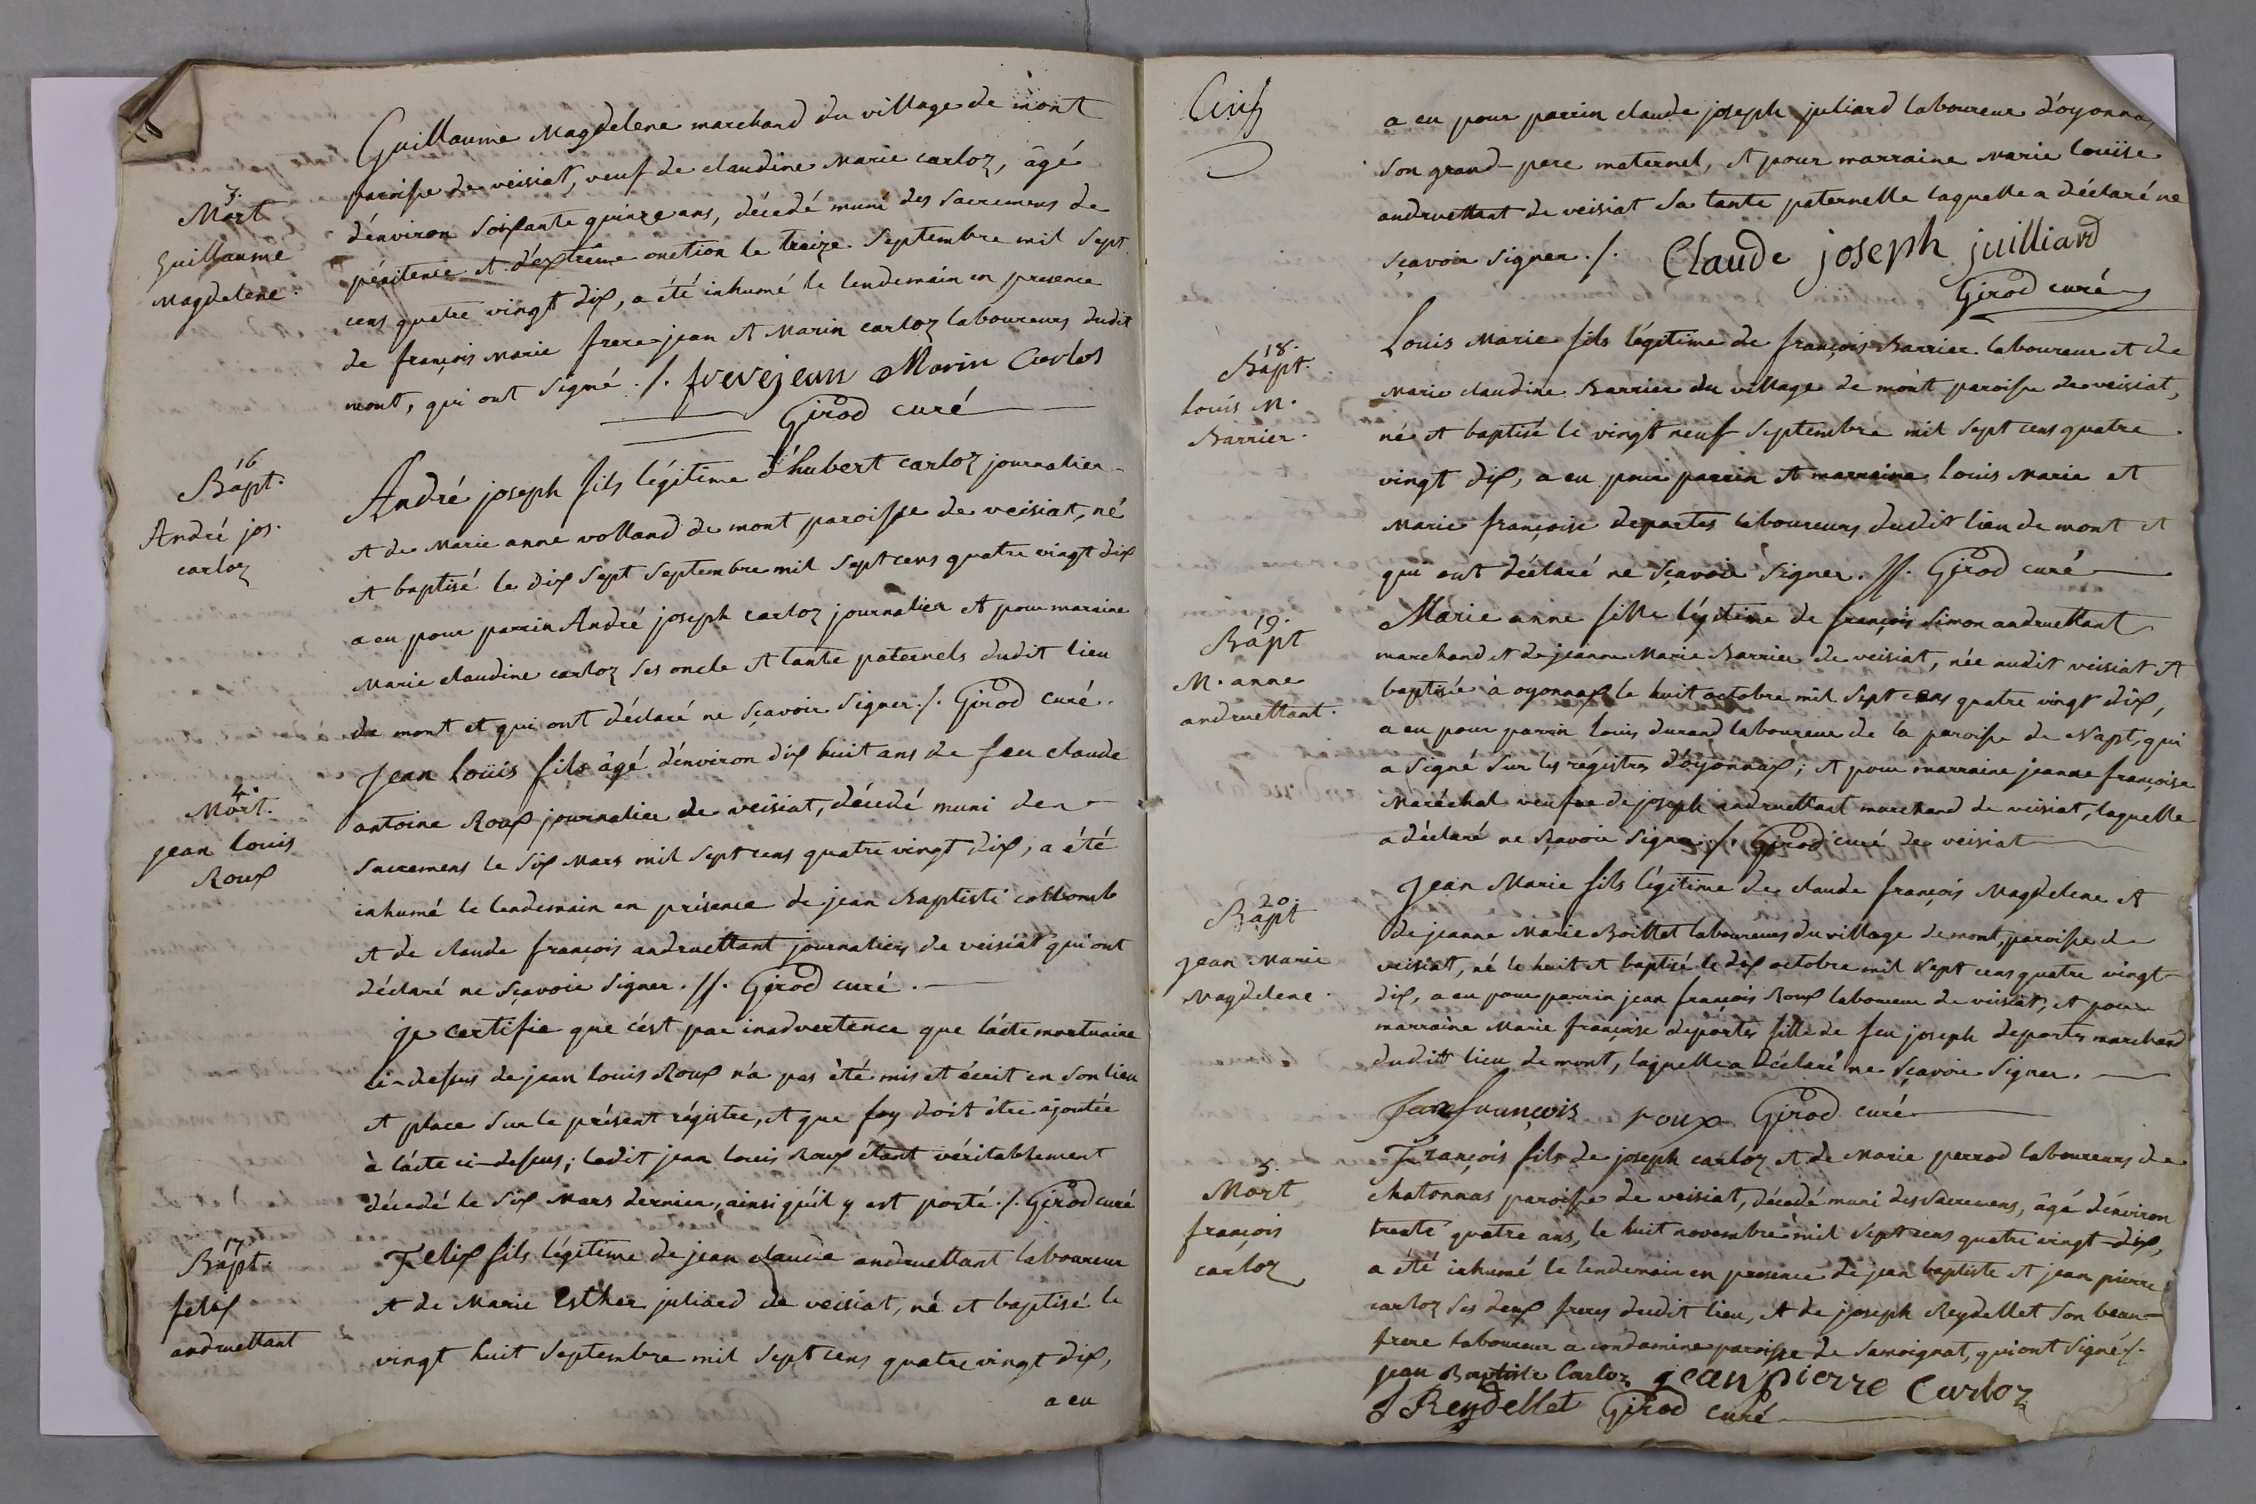 Guillaume Magdelene marchand du village de mont
3.
Mort
Guillaume
Magdelene.
paroisse de veisiat, veuf de claudine Marie carloz, âgé
d'environ soixante quinze ans, décédé muni des sacremens de
pénitence et d'extreme onction le treize septembre mil sept
cens quatre vingt dix, a été inhumé le lendemain en presence
de françois marie frere jean et Marin carloz laboureurs dudit
mont, qui ont signé ./. frerejean Marin Carlos
Girod curé
16
Bapt.
André jos.
carloz
André joseph fils légitime d'hubert carloz journalier
et de Marie anne volland de mont paroisse de veisiat, né
et baptisé le dix sept septembre mil sept cens quatre vingt dix
a eu pour parrin André joseph carloz journalier et pour maraine
Marie claudine carloz ses oncle et tante paternels dudit lieu
de mont et qui ont déclaré ne sçavoir signer ./. Girod curé.
4.
Mort.
jean louis
Roux
Jean Louis fils âgé d'environ dix huit ans de feu claude
antoine Roux journalier de veisiat, décédé muni des
sacremens le six Mars mil sept cens quatre vingt dix, a été
inhumé le lendemain en présence de jean Baptiste collomb
et de claude françois andruettant journaliers de veisiat qui ont
déclaré ne sçavoir signer .//. Girod curé.
je certifie que c'ést par inadvertence que l'acte mortuaire
ci-dessus de jean louis Roux n'a pas été mis et écrit en son lieu
et place sur le présent régistre, et que foy doit être ajoutée
à l'acte ci-dessus; ledit jean louis Roux étant véritablement
décedé le six Mars dernier, ainsi qu'il y est porté ./. Girod curé
17
Bapt.
felix
andruettant
Felix fils légitime de jean claude andruettant laboureur
et de Marie Esther juliard de veisiat, né et baptisé le
vingt huit septembre mil sept cens quatre vingt dix,
a eu
Cinq
a eu pour parrin claude joseph juliard laboureur d'oyonnax
son grand-pere maternel, et pour marraine Marie louïse
andruettant de veisiat sa tante paternelle laquelle a déclaré ne
sçavoir signer ./. Claude joseph juilliard
Girod curé
18.
Bapt.
louis M.
Barrier.
Louis Marie fils légitime de françois Barrier laboureur et de
Marie claudine Barrier du village de mont paroisse de veisiat,
né et baptisé le vingt neuf septembre mil sept cens quatre
vingt dix, a eu pour parrin et marraine louis Marie et
Marie françoise deportes laboureurs dudit lieu de mont et
qui ont déclaré ne sçavoir signer .//. Girod curé
19.
Bapt
M. anne
andruettant.
Marie anne fille légitime de françois Simon andruettant
marchand et de jeanne Marie Barrier de veisiat, née audit veisiat et
baptisée à oyonnax le huit octobre mil sept cens quatre vingt dix,
a eu pour parrin louis durand laboureur de la paroisse de Napt, qui
a signé sur les régistres d'oyonnax; et pour marraine jeanne françoise
Maréchal veufve de joseph andruettant marchand de veisiat, laquelle
a déclaré ne sçavoir signer ./. Girod curé de veisiat
20.
Bapt
jean Marie
Magdelene.
Jean Marie fils légitime de claude françois Magdelene et
de jeanne Marie Boillet laboureurs du village de mont, paroisse de
veisiat, né le huit et baptisé le dix octobre mil sept cens quatre vingt
dix, a eu pour parrin jean françois Roux laboureur de veisiat, et pour
marraine Marie françoise deportes fille de feu joseph deportes marchand
dudit lieu de mont, laquelle a déclaré ne sçavoir signer.
Jean françois roux Girod curé
5.
Mort
françois
carloz
François fils de joseph carloz et de Marie perrod laboureurs de
chatonnas paroisse de veisiat, décédé muni des sacremens, âgé d'environ
trente quatre ans, le huit novembre mil sept cens quatre vingt-dix,
a été inhumé le lendemain en presence de jean baptiste et jean pierre
carloz ses deux freres dudit lieu, et de joseph Reydellet son beau-
frere laboureur a condamine paroisse de Samoignat, qui ont signé ./.
jean Baptiste Carloz jean pierre Carloz
J Reydellet Girod curé